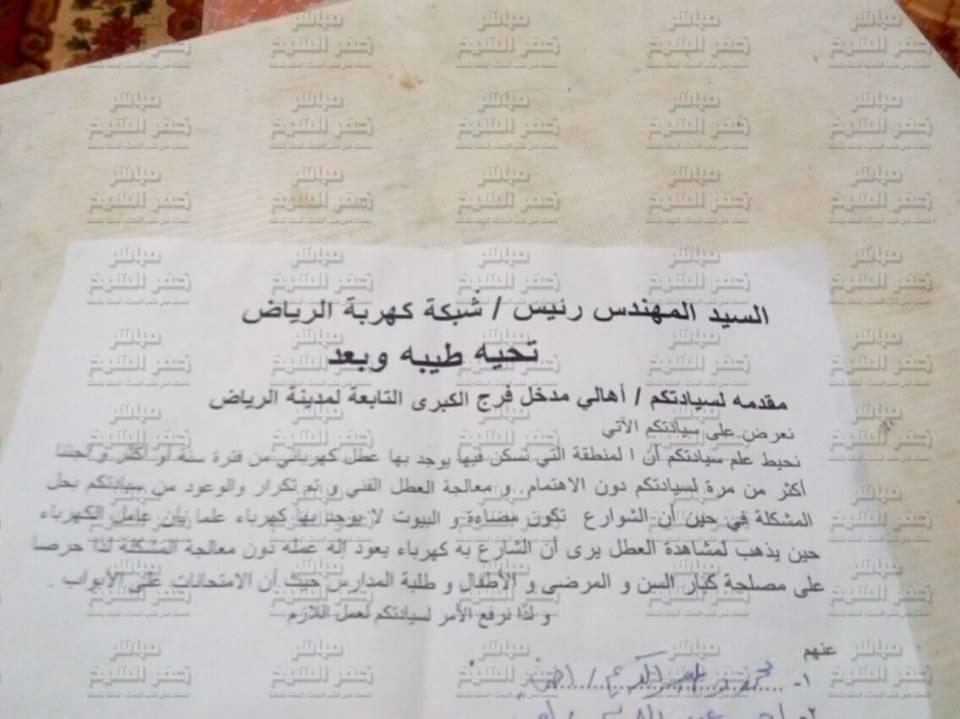 السيد المهندس رئيس / شبكة كهربة الرياض
تحيه طيبه وبعد
مقدمه لسيادتكم / أهالي مدخل فرج الكبرى التابعة لمدينة الرياض
نعرض على سيادتكم الآتي
نحيط علم سيادتكم أن ا لمنطقة التي نسكن فيها يوجد بها عطل كهربائي من فترة سنة أو أكثر و لجئنا
أكثر من مرة لسيادتكم دون الاهتمام و معالجة العطل الفني و تم تكرار والوعود من سيادتكم بحل
المشكلة في حين أن الشوارع تكون مضاءة و البيوت لا يوجد بها كهرباء علما بأن عامل الكهرباء
حين يذهب لمشاهدة العطل يرى أن الشارع به كهرباء يعود إله عمله دون معالجة المشكلة لذا حرصا
على مصلحة كبار السن و المرضى و الأطفال و طلبة المدارس حيث أن الامتحانات على الأبواب .
و لذا نرفع الأمر لسيادتكم لعمل اللازم
عنهم
١-
٢-
مباشر
كفر الشيخ